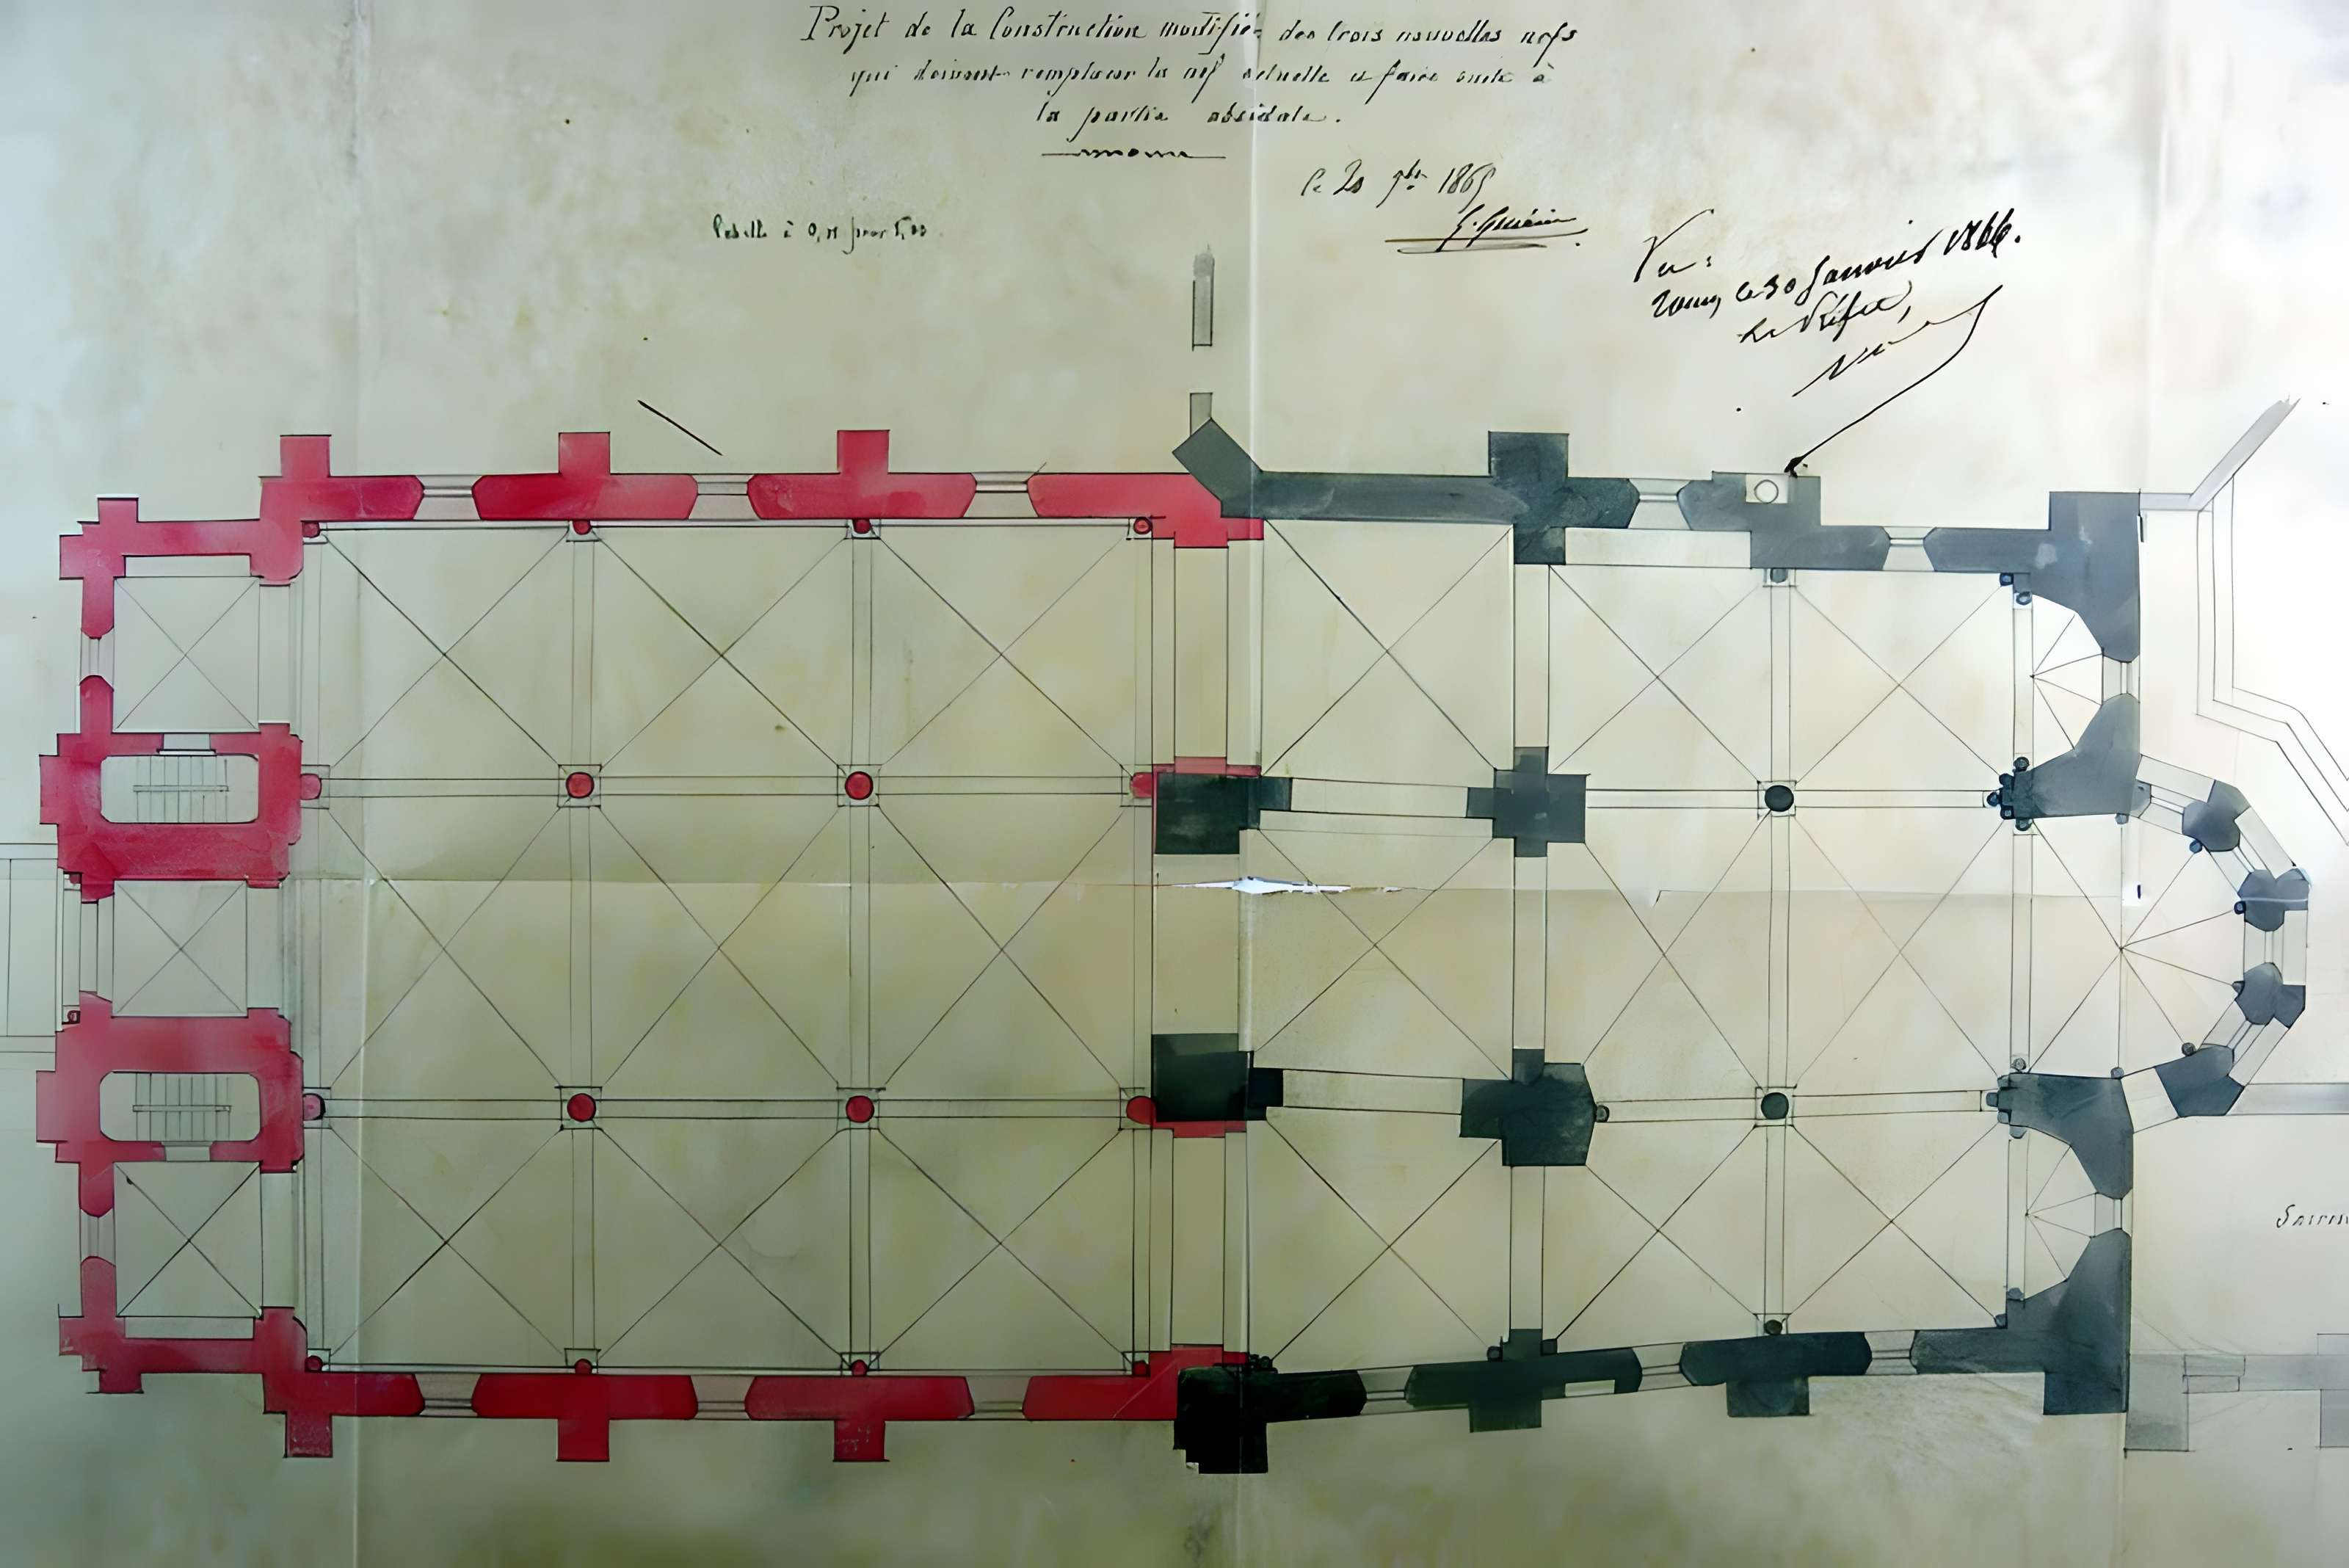 Projet de la Construction modifié des trois nouvelles nefs
qui doivent remplacer la nef actuelle et faire suite à
la partie absidale.
le 20 9bre 1865
G. Guérin
Echelle à 0,01 pour 1,00
Vu:
Tours, le 30 Janvier 1866.
Le Préfet,